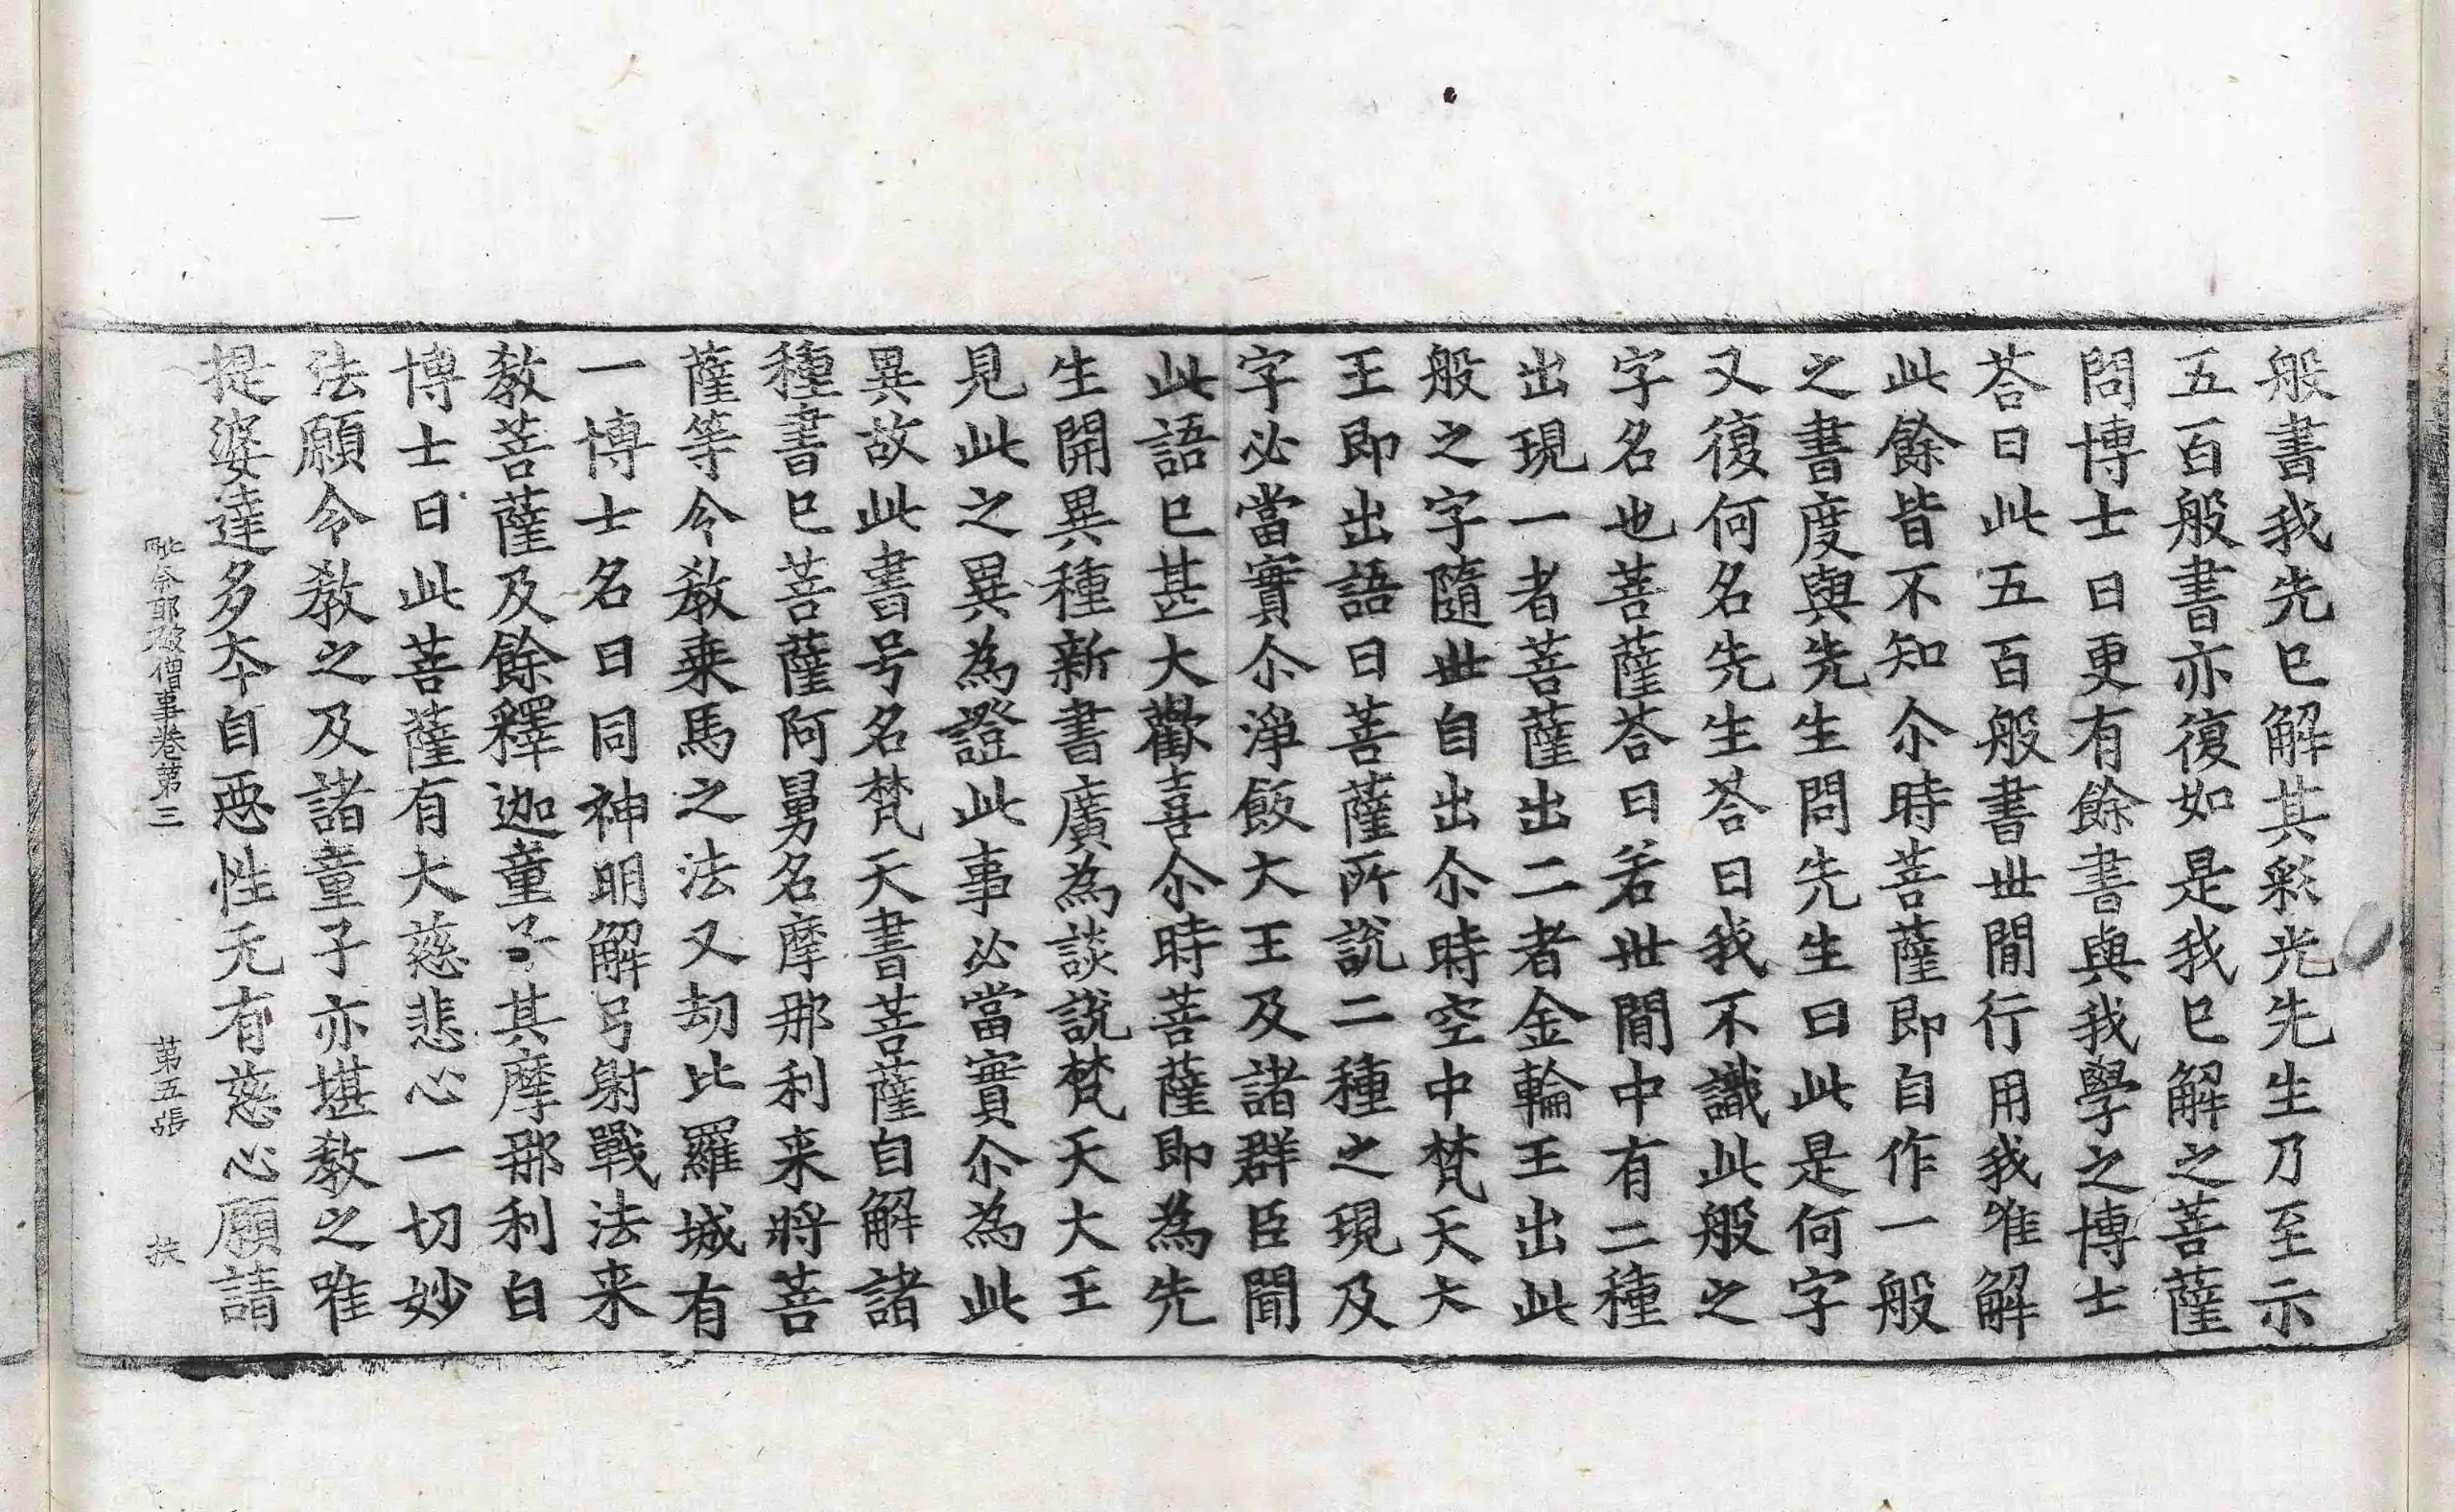 般書我先已解其彩光先生乃至示
五百般書亦復如是我已解之菩薩
問博士曰更有餘書與我學之博士
荅曰此五百般書世閒行用我唯解
此餘皆不知尒時菩薩即自作一般
之書度與先生問先生曰此是何字
又復何名先生荅曰我不識此般之
字名也菩薩荅曰若世閒中有二種
出現一者菩薩出二者金輪王出此
般之字隨世自出尒時空中梵天大
王即出語曰菩薩所說二種之現及
字必當實尒淨飯大王及諸群臣聞
此語已甚大歡喜尒時菩薩即為先
生開異種新書廣為談說梵天大王
見此之異為證此事必當實尒為此
異故此書号名梵天書菩薩自解諸
種書已菩薩阿舅名摩那利来將菩
薩等令教乗馬之法又劫比羅城有
一博士名曰同神明解弓射戰法来
教菩薩及餘釋迦童子其摩那利白
博士曰此菩薩有大慈悲心一切妙
法願令教之及諸童子亦堪教之唯
提婆達多夲自惡性无有慈心願請
毗奈耶破僧事卷第三 第五張 扶